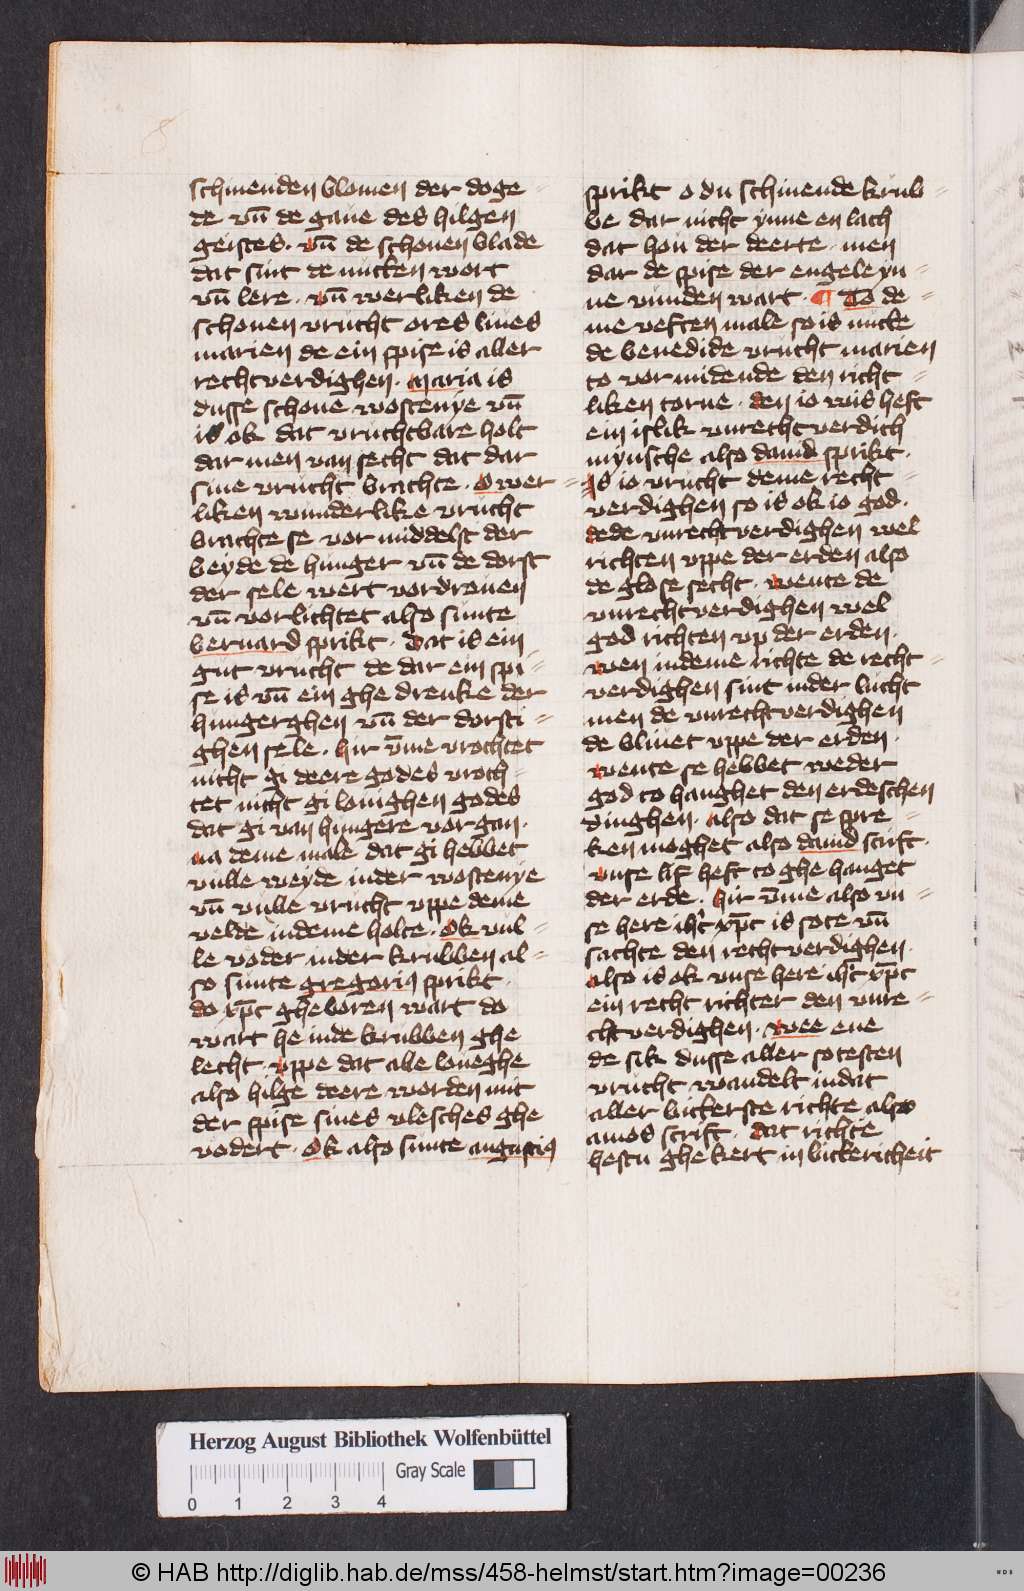 schinenden blomen der doge
de vn̄ de gaue des hilgen
geistes. vn̄ de schonen blade
dat sint de nutten wort
vn̄ lere. vn̄ werliken de
schonen vrucht ores liues
marien de ein spise is aller
rechtverdighen. Maria is
dusse schone wostenye vn̄
is ok dat vruchtbare holt
dar men van secht dat dar
sine vrucht brachte. O wer
liken wunderlike vrucht
brachte se vor middelst der
beyde de hunger vn̄ de dorst
der sele wert vordreuen
vn̄ vorlichtet also sunte
bernard sprikt. Dat is ein
gut vrucht de dar ein spi
se is vn̄ ein ghe drenke der
hungerghen vn̄ der dorsti
ghen sele. hir v̄me vrochtet
nicht gi deere godes vroch
tet nicht gi louighen godes
dat gi van hungere vor gan.
na deme male dat gi hebbet
vulle weyde inder wostenye
vn̄ vulle vrucht vppe deme
velde indeme holte. Ok vul
le voder inder krubben al
so sunte gregoriꝰ sprikt.
do xp̄c gheboren wart do
wart he inde krubben ghe
lecht. vppe dat alle loueghe
also hilge deere worden mit
der spise sines vlesches ghe
vodert. Ok also sunte augustiꝰ
sprikt o du schinende krub
be dar nicht ynne en lach
dat hou der deerte. men
dar de spise der engele yn
ne vunden wart. ¶ To de
me veften male so is nutte
de benedide vrucht marien
to vormidende den richt
liken torne. den io wis heft
ein islik vnrechtverdich
mynsche also dauid sprikt.
Is io vrucht deme recht
verdighen so is ok io god.
dede vnrechtverdighen wel
richten vppe der erden also
de glose secht. wente de
vnrechtverdighen wel
god richten vp der erden.
wen indeme richte de recht
verdighen sint inder lucht
men de vnrechtverdighen
de bliuet vppe der erden.
wente se hebbet weder
god to hanghet den erdeschen
dinghen. also dat se spre
ken moghet also dauid scrift.
vnse lif heft to ghe hanget
der erde. hir v̄me also vn
se here ih̄c xp̄c is sote vn̄
sachte den rechtverdighen.
also is ok vnse here ih̄c xp̄c
ein recht richter den vnre
chtverdighen. wee ene
de sik dusse aller sotesten
vrucht wandelt indat
aller bitterste richte also
amos scrift. dat richte
hestu ghe kert in bittericheit
Herzog August Bibliothek Wolfenbüttel
0 1 2 3 4
Gray Scale
© HAB http://diglib.hab.de/mss/458-helmst/start.htm?image=00236